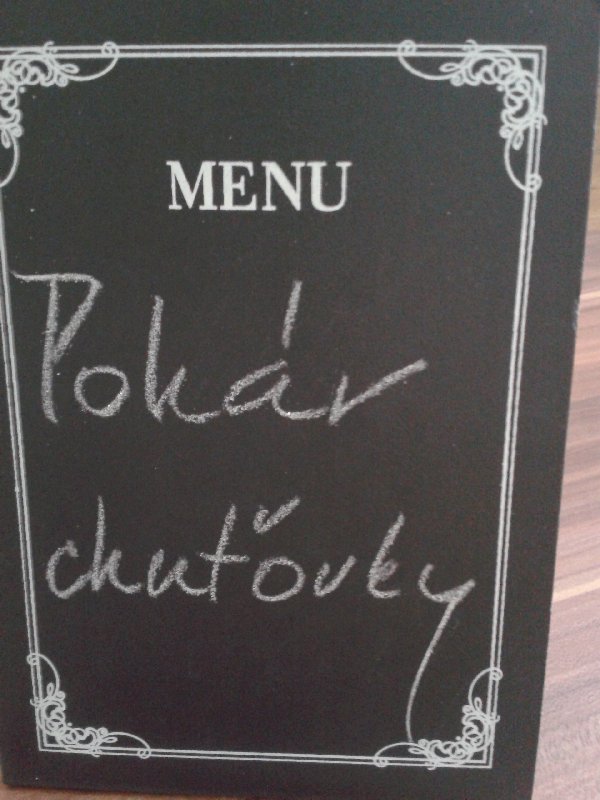 MENU
Pohár
chuťovky